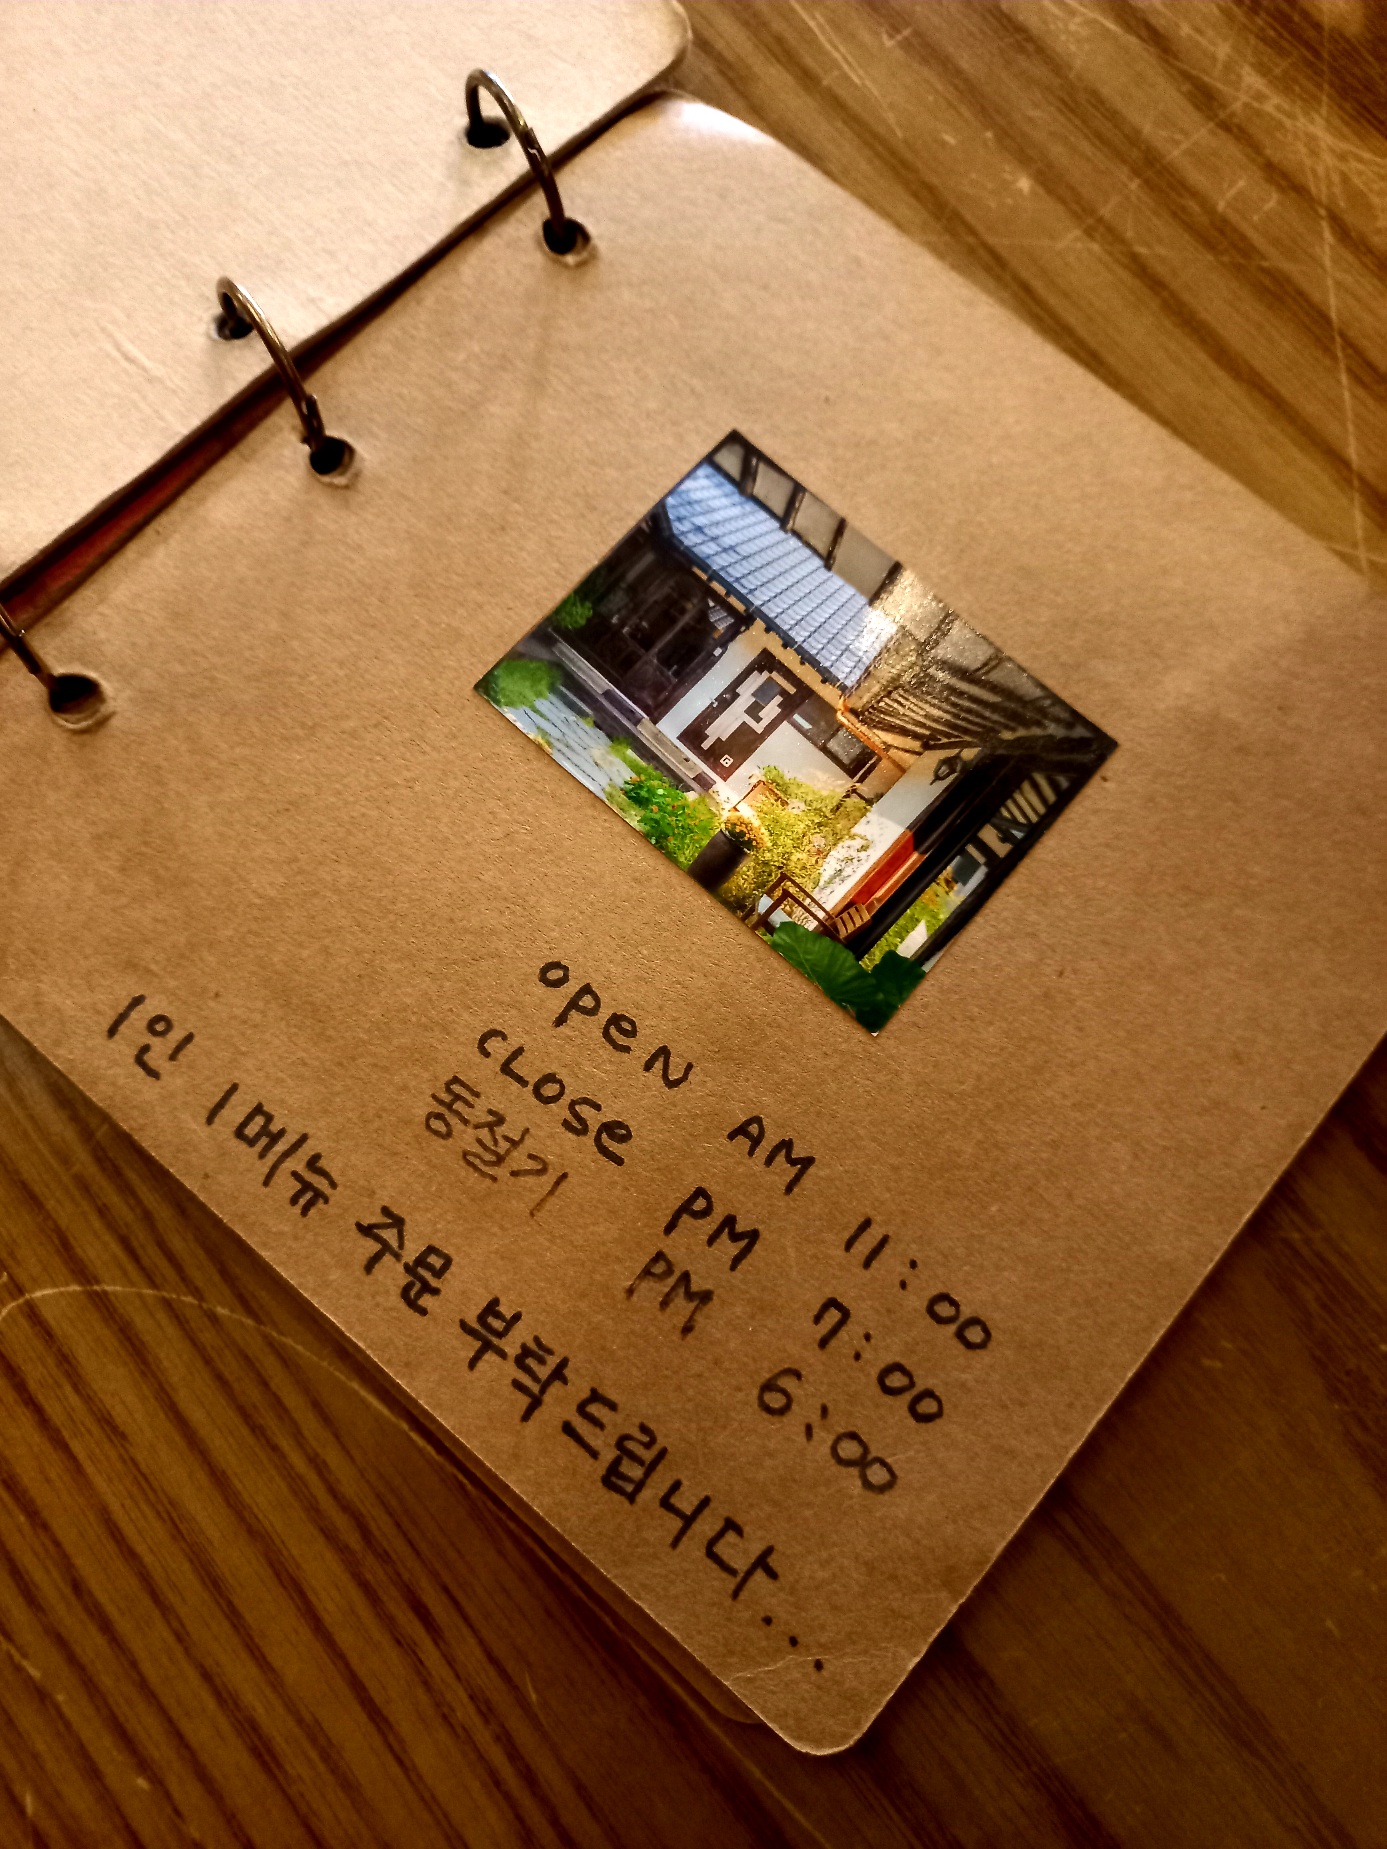 OPEN AM 11:00
CLOSE PM 7:00
동절기 PM 6:00
1인 1메뉴 주문 부탁드립니다...